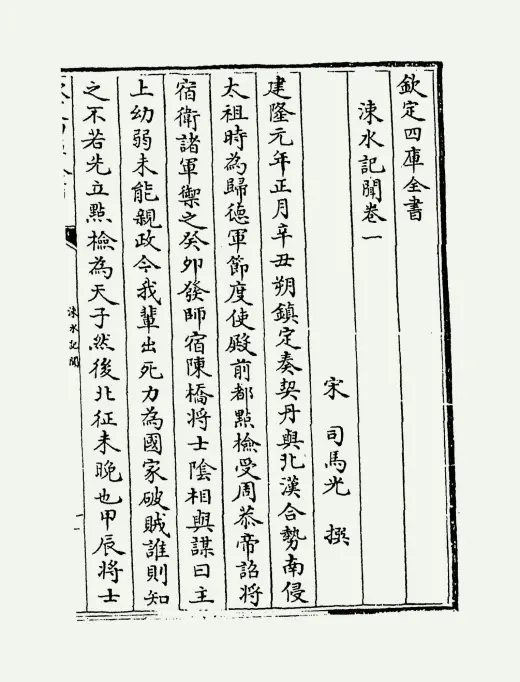 欽定四庫全書
涑水記聞卷一
宋 司馬光 撰
建隆元年正月辛丑朔鎮定奏契丹與北漢合勢南侵
太祖時為歸德軍節度使殿前都點檢受周恭帝詔將
宿衛諸軍禦之癸卯發師宿陳橋將士陰相與謀曰主
上幼弱未能親政今我輩出死力為國家破賊誰則知
之不若先立點檢為天子然後北征未晚也甲辰將士
涑水記聞